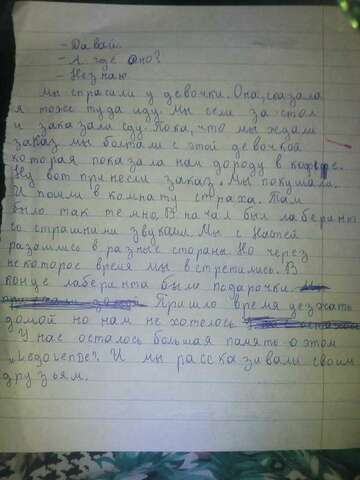 - Давай.
- А где оно?
- Незнаю.
Мы спрасили у девочки. Она, сказала
я тоже туда иду. Мы сели за стол
и заказали еду. Пока, что мы ждали
заказ мы болтали с этой девочкой
которая показала нам дорогу в кофе.
Ну вот принесли заказ. Мы покушали.
И пошли в комнату страха. Там
было так темно. В начал был лаберинт
со страшними звуками. Мы с Настей
разошлись в разные стороны. Но через
некоторое время мы встретились. В
конце лаберинта были подарочки.
Прошло время уезжать
домой но нам не хотелось
У нас осталось большая память о этом
„Legoленде". И мы рассказивали своим
друзьям.